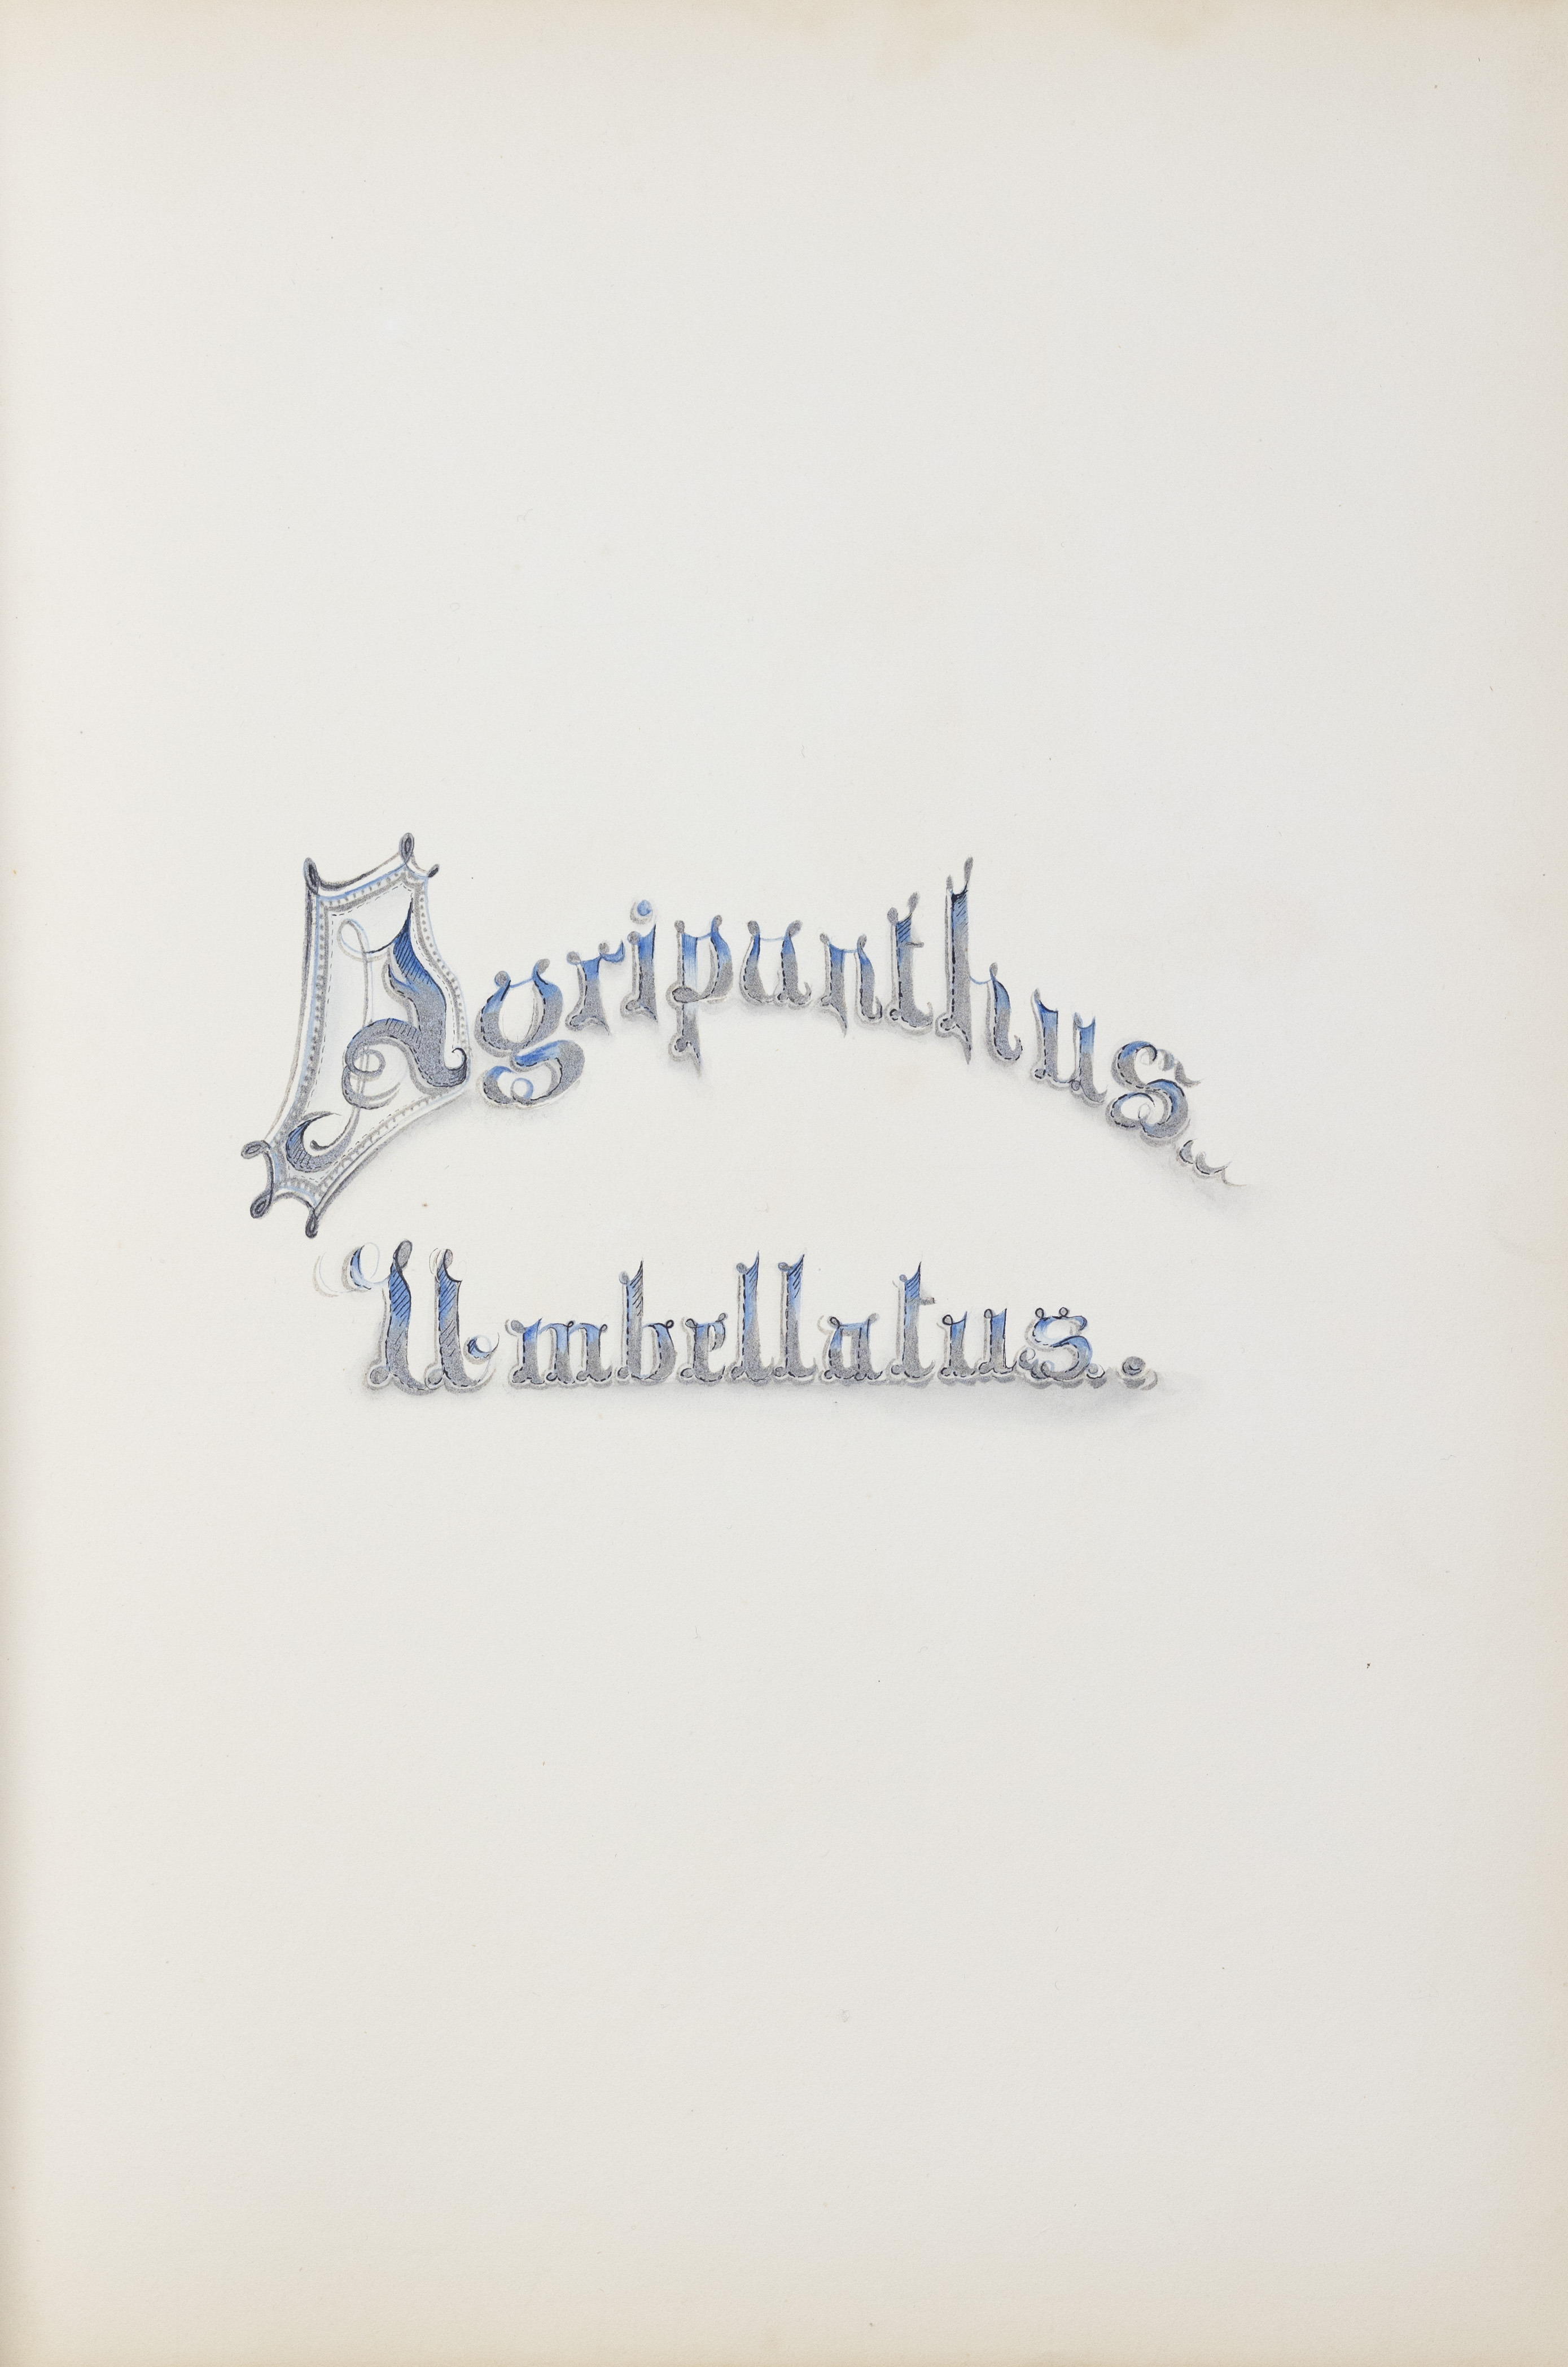 Agripunthus
Umbellatus.